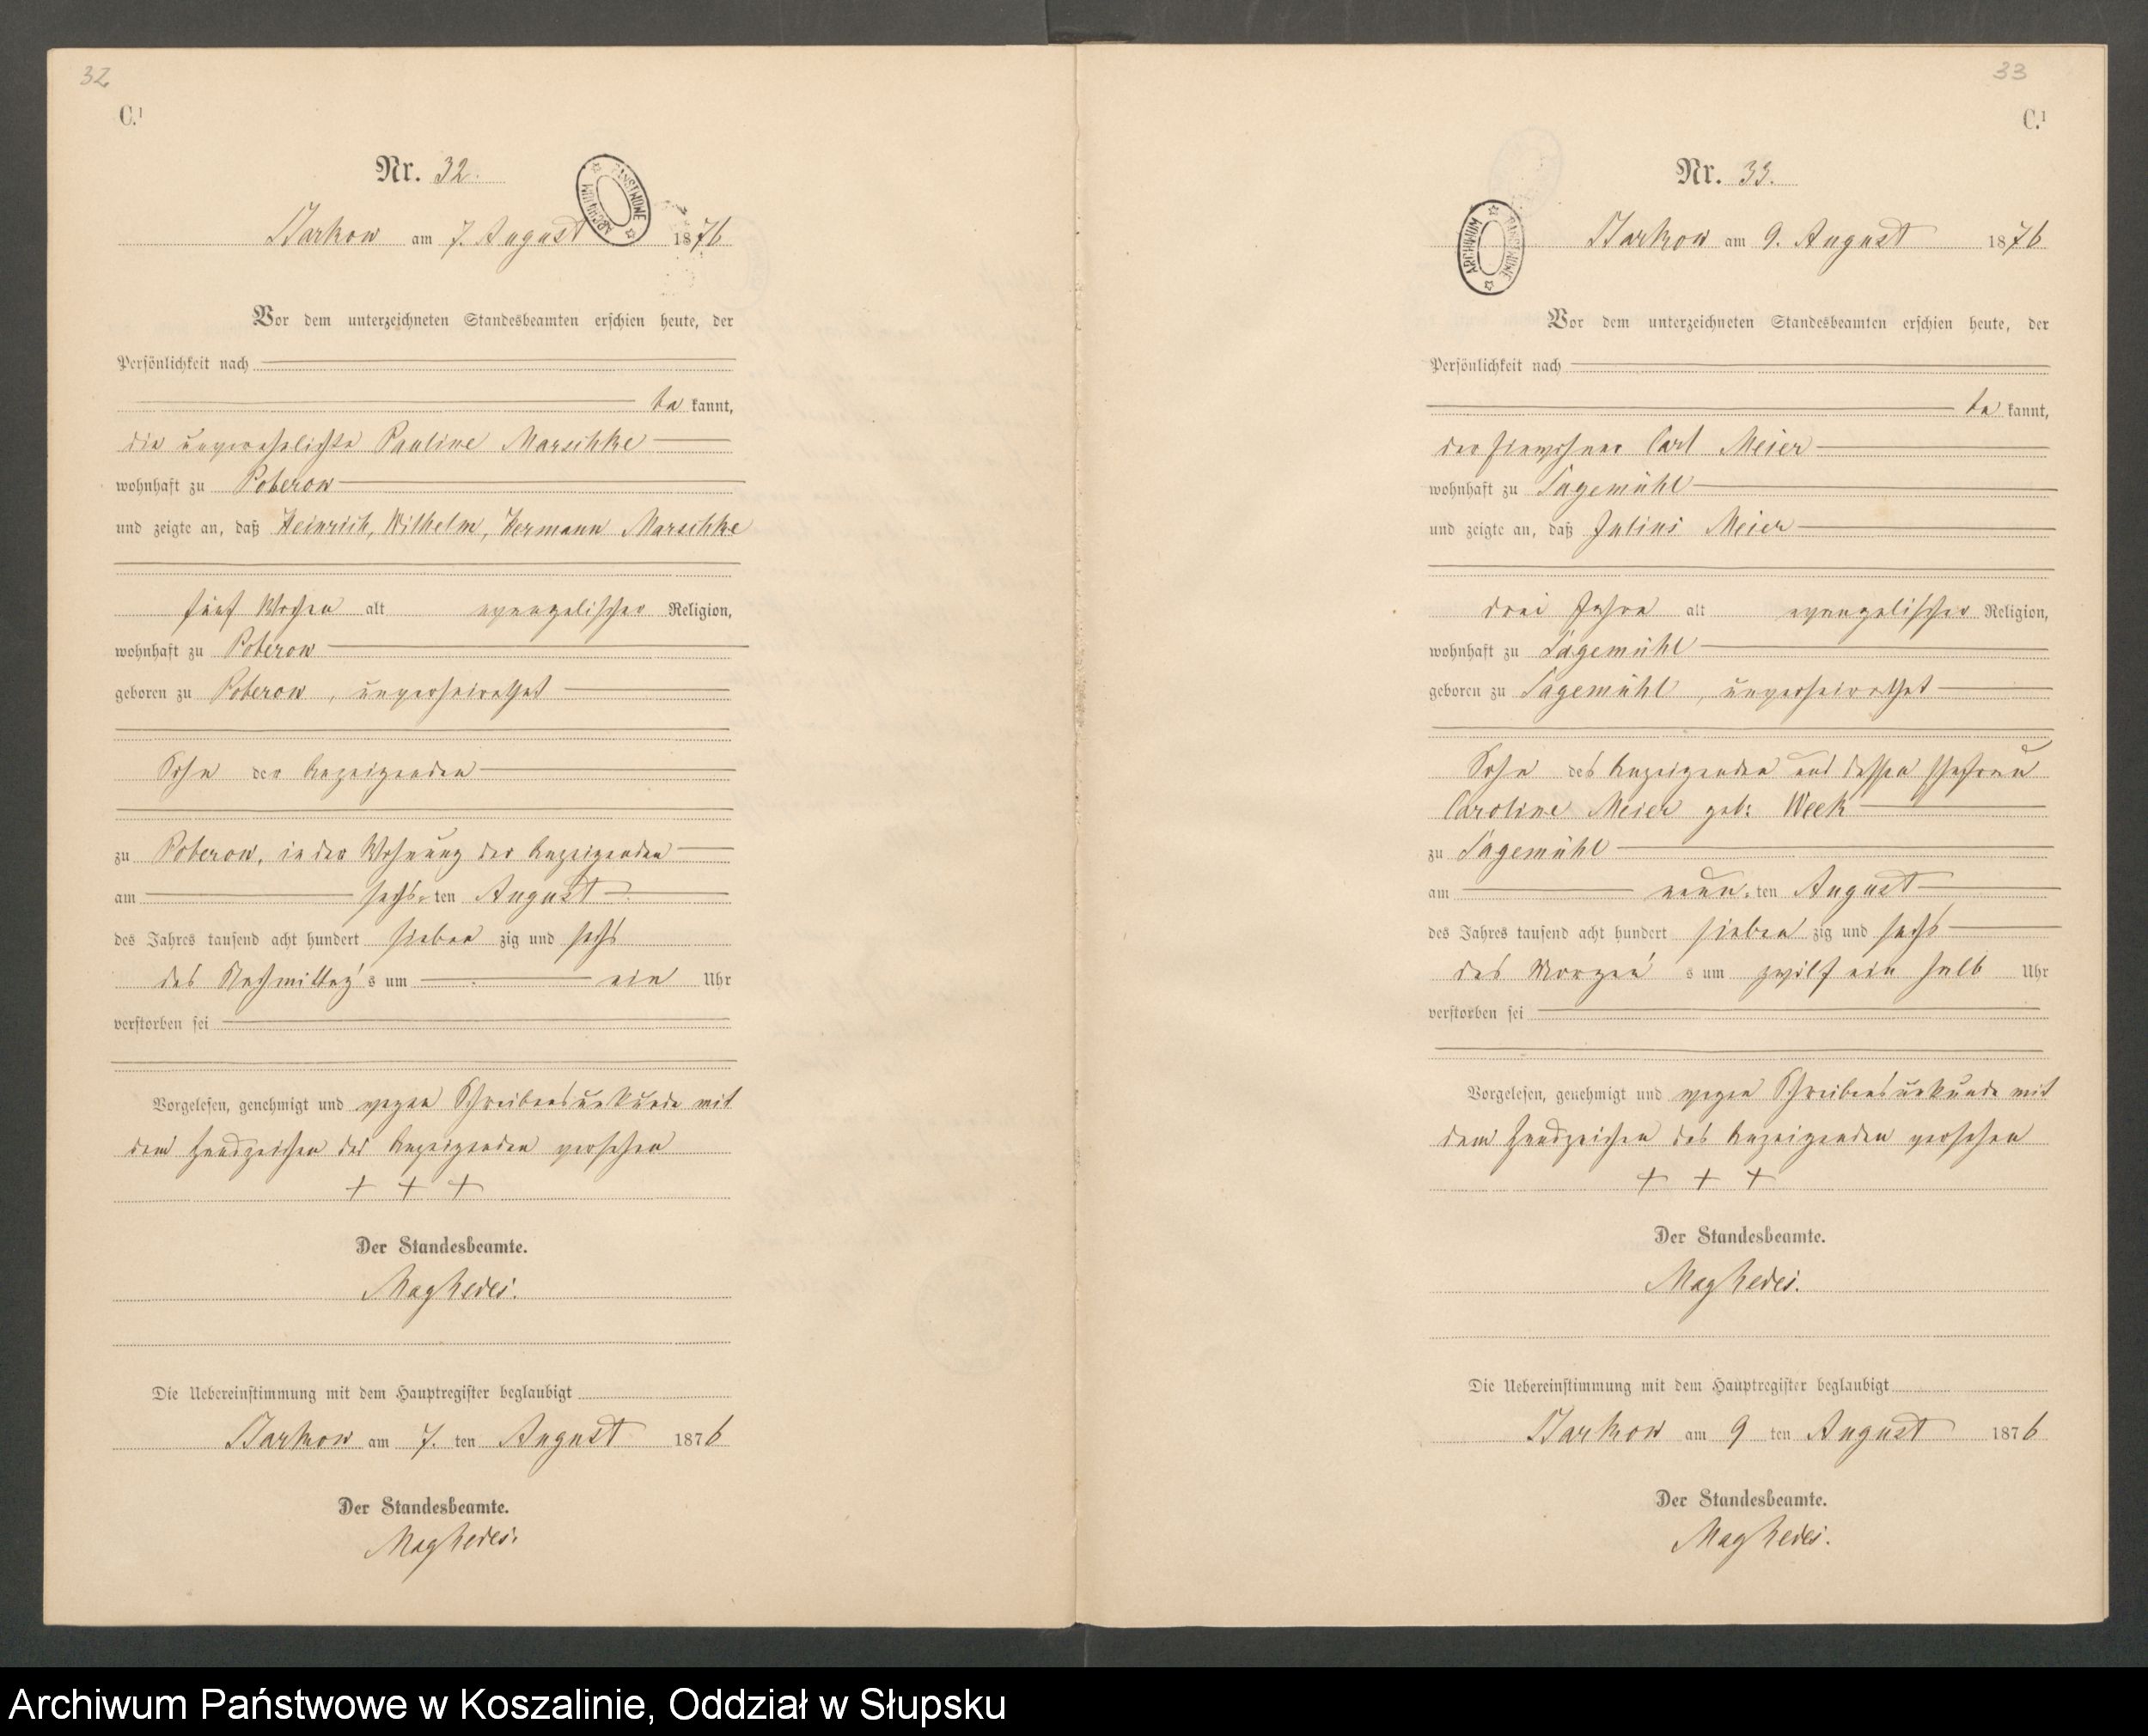 32
C.¹
Nr. 32.
ARCHIWUM PAŃSTWOWE
Barkow am 7. August 1876
Vor dem unterzeichneten Standesbeamten erschien heute, der
Persönlichkeit nach
be kannt,
die unverehelichte Pauline Marschke
wohnhaft zu Poberow
und zeigte an, daß Heinrich, Wilhelm, Hermann Marschke
fünf Wochen alt evangelischer Religion,
wohnhaft zu Poberow
geboren zu Poberow, unverheirathet
Sohn der Anzeigenden
zu Poberow, in der Wohnung der Anzeigenden
am sechs.ten August
des Jahres tausend acht hundert sieben zig und sechs
des Nachmittag's um ein Uhr
verstorben sei
Vorgelesen, genehmigt und wegen Schreibensunkunde mit
dem Handzeichen der Anzeigenden versehen
+ + +
Der Standesbeamte.
Die Uebereinstimmung mit dem Hauptregister beglaubigt
Barkow am 7. ten August 1876
Der Standesbeamte.
33
C.¹
Nr. 33.
ARCHIWUM PAŃSTWOWE
Barkow am 9. August 1876
Vor dem unterzeichneten Standesbeamten erschien heute, der
Persönlichkeit nach
be kannt,
der Einwohner Carl Meier
wohnhaft zu Sagemühl
und zeigte an, daß Julius Meier
drei Jahre alt evangelischer Religion,
wohnhaft zu Sagemühl
geboren zu Sagemühl, unverheirathet
Sohn des Anzeigenden und dessen Ehefrau
Caroline Meier geb: Week
zu Sagemühl
am neun.ten August
des Jahres tausend acht hundert sieben zig und sechs
des Morgen's um zwölf ein halb Uhr
verstorben sei
Vorgelesen, genehmigt und wegen Schreibensunkunde mit
dem Handzeichen des Anzeigenden versehen
+ + +
Der Standesbeamte.
Die Uebereinstimmung mit dem Hauptregister beglaubigt
Barkow am 9 ten August 1876
Der Standesbeamte.
Archiwum Państwowe w Koszalinie, Oddział w Słupsku